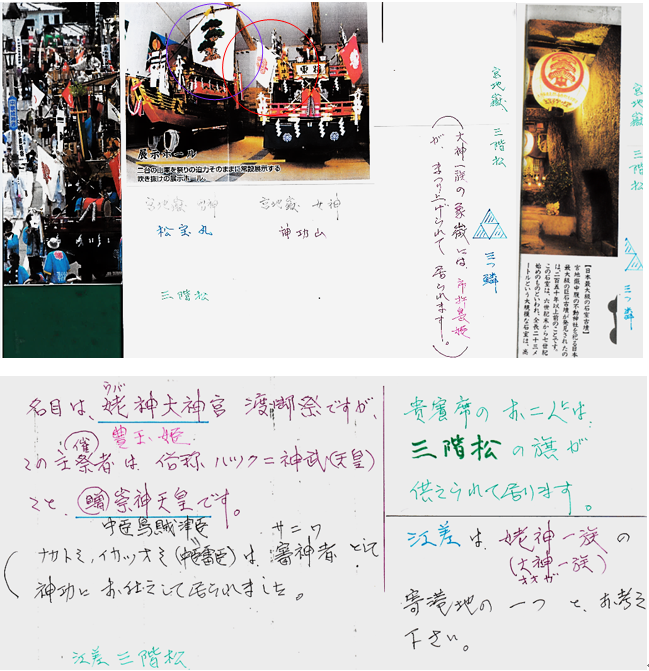 展示ホール
二台の山車を祭りの迫力そのままに常設展示する
吹き抜けの展示ホール。
宮地嶽 男神 宮地嶽 女神
松宝丸 神功山
三階松
宮地嶽 三階松
三つ鱗
(大神一族の象徴には、市杵島姫
が、まつり上げられて居られます。)
宮地嶽 三階松
三つ鱗
【日本最大級の石室古墳】
宮地嶽中腹の不動神社を祀る日本
最大級の巨石古墳が発見されたの
は、二百五十年以上前のことです。
この石室は、六世紀末から七世紀
始めのものといわれ、全長二十三メ
ートルという大規模な石室は、高
ウバ
名目は、姥神大神宮 渡御祭ですが、
豊玉姫
この主催者は 俗称 ハツクニ神武(天皇)
こと、崇神天皇です。
中臣烏賊津臣 サニワ
(ナカトミ、イカツオミ(中臣雷臣)は、審神者として
神功にお仕えして居られました。
江差 三階松
貴賓席のお二人には、
三階松の旗が
供えられて居ります。
江差は、姥神一族の
(大神一族)
オオガ
寄港地の一つと、お考え
下さい。